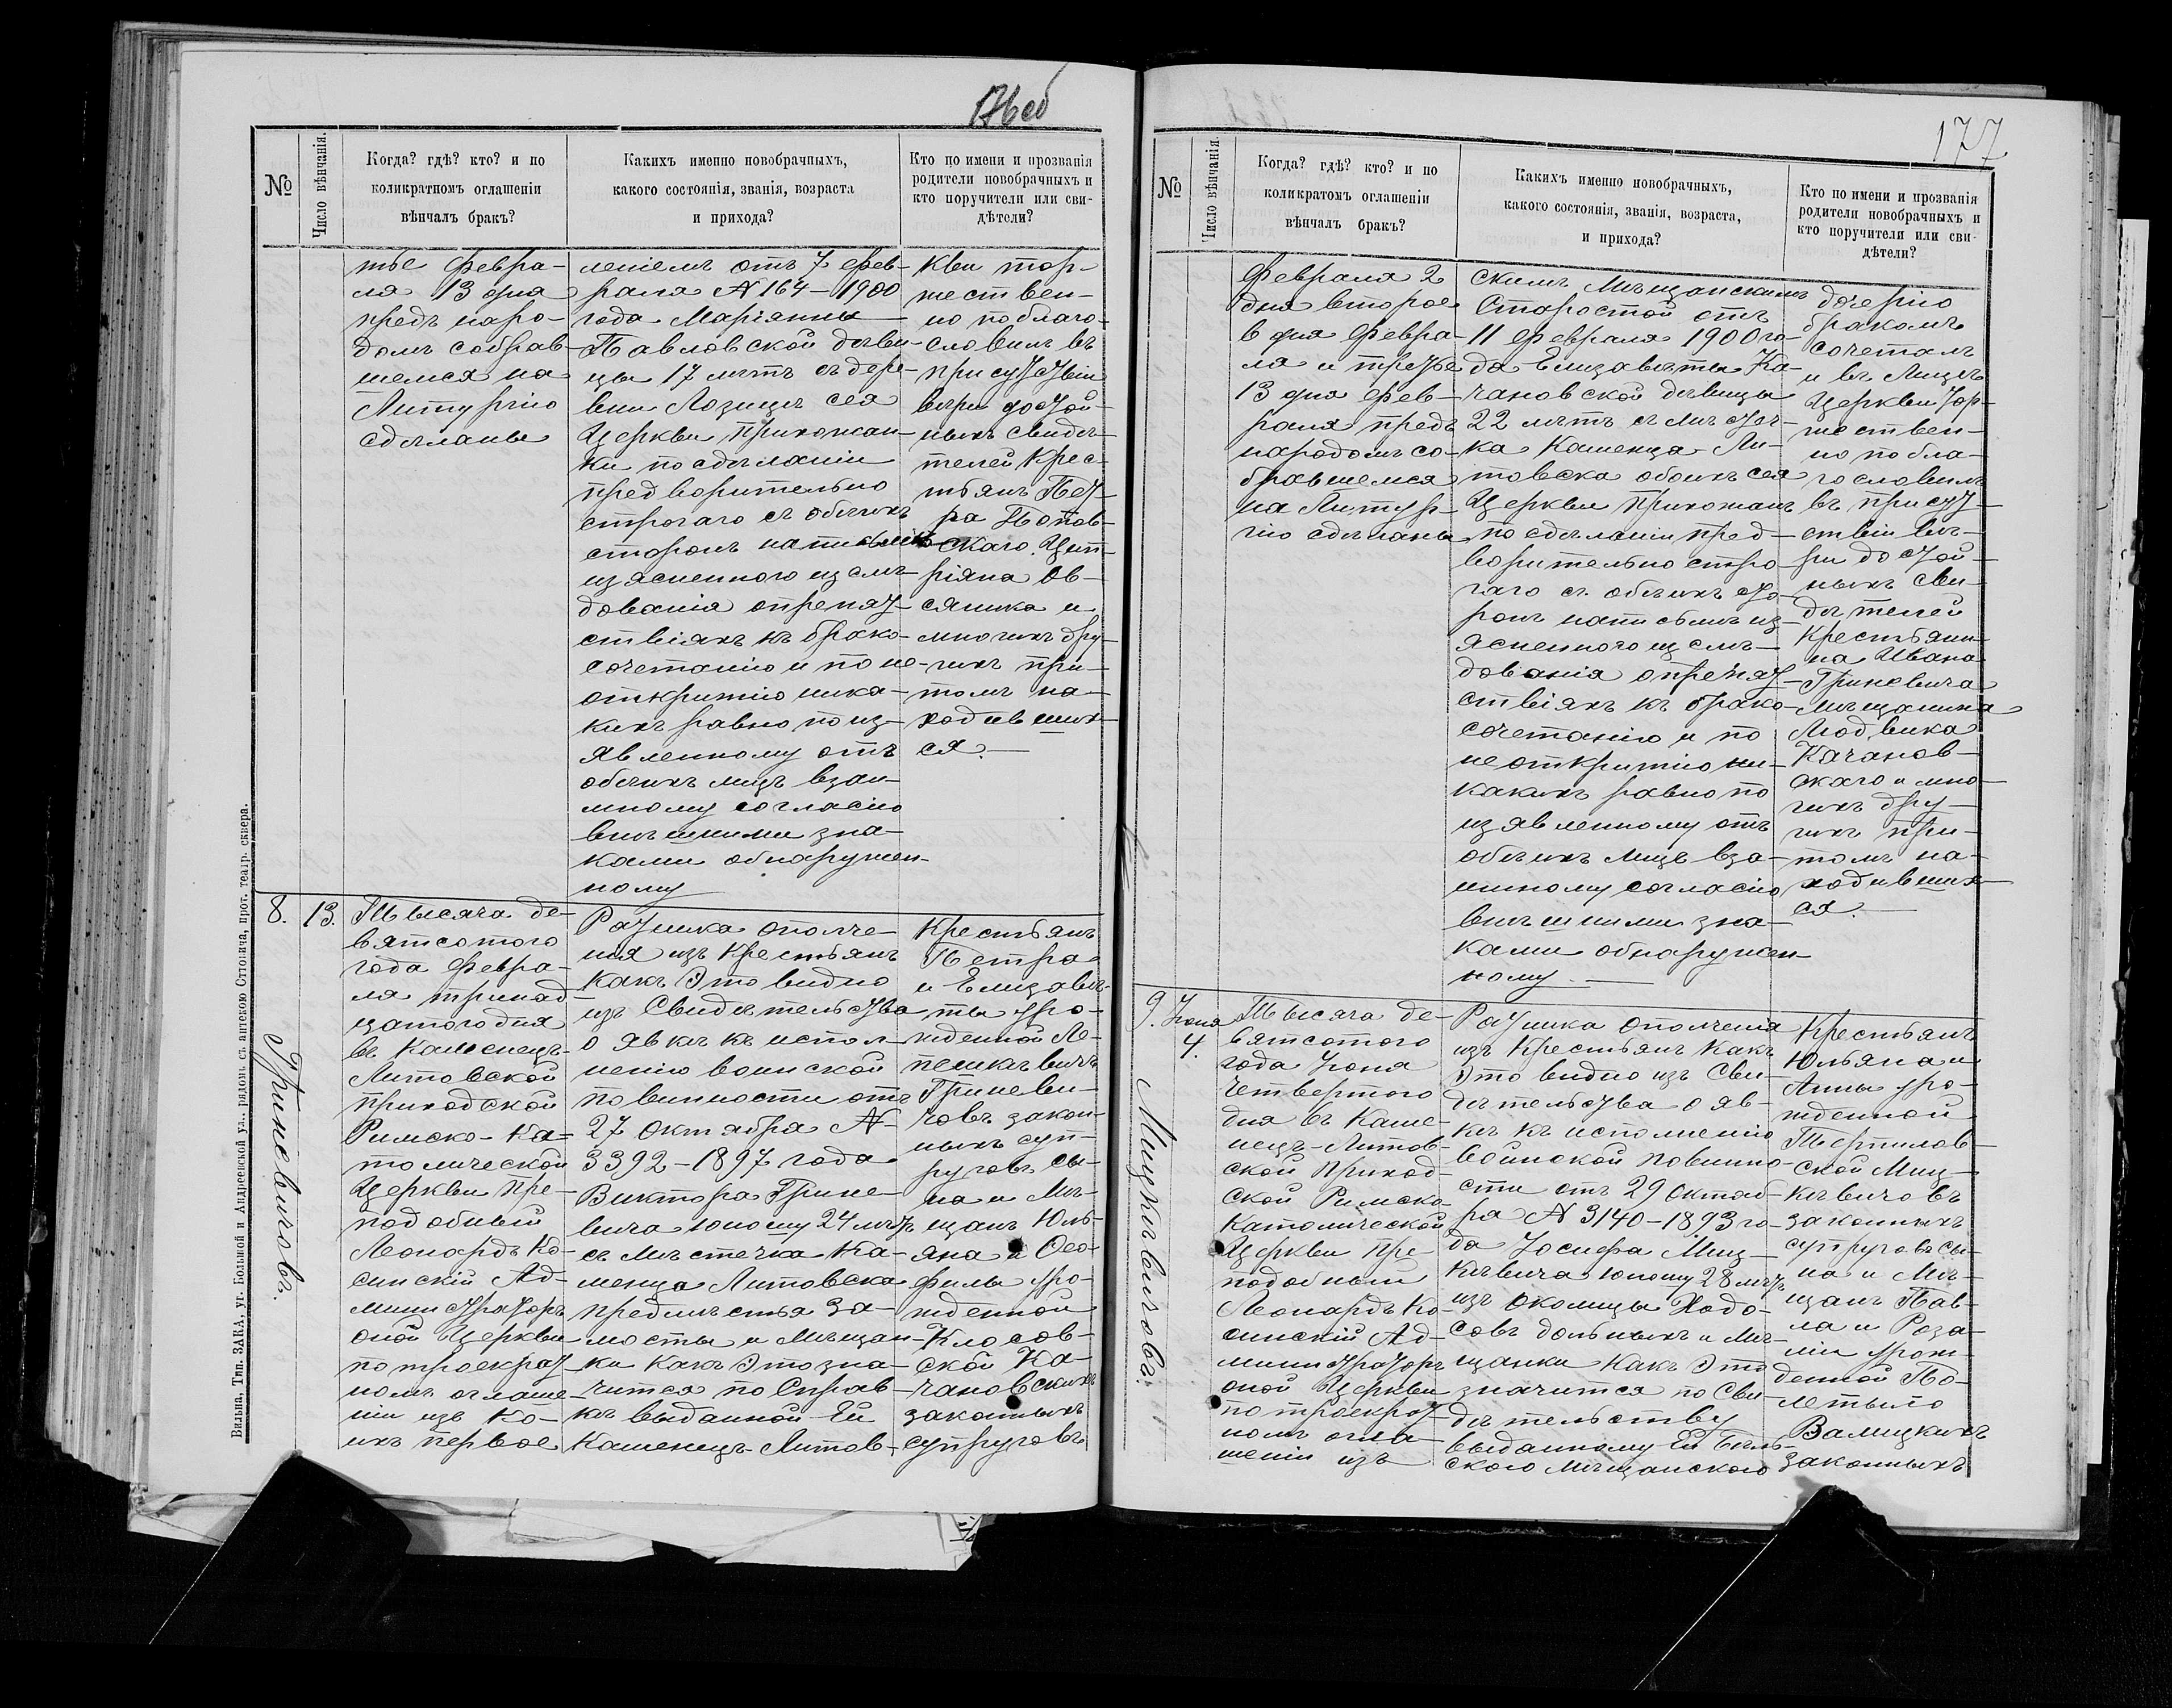 176 об
№
Число вѣнчанія.
Когда? гдѣ? кто? и по
коликратномъ оглашеніи
вѣнчалъ бракъ?
Какихъ именно новобрачныхъ,
какого состоянія, званія, возраста
и прихода?
Кто по имени и прозванія
родители новобрачныхъ и
кто поручители или сви-
дѣтели?
тье Февра-
ля 13 дня
предъ наро-
домъ собрав-
шемся на
Литургію
сдѣланы
леніемъ отъ 7 фев-
раля N 164 – 1900
года Маріянны
Павловской дѣви-
цы 17 лѣтъ съ дере-
вни Лозицы сея
Церкви Прихожан-
ки по сдѣланіи
предворительно
строгаго съ обѣихъ
сторонъ на письмѣ
изясненного изслѣ-
дованія опрепят-
ствіяхъ къ брако-
сочетанію и по не-
открытію ника-
кихъ равно по из-
явленному отъ
обѣихъ лицъ взаи-
мному согласію
внѣшними зна-
ками обнаружен-
ному
кви тор-
жествен-
но по благо-
словилъ въ
присутствіи
вѣры достой-
ныхъ свидѣ-
телей Крес-
тьянъ Пет-
ра Поплов-
скаго, Цип-
ріяна Ов-
сяника и
многихъ дру-
гихъ при-
томъ на-
ходивших-
ся. —
8.
13.
Гриневичовъ.
Тысяча де-
вятсотого
года Февра-
ля тринад-
цатого дня
въ Каменецъ-
Литовской
приходской
Римско-Ка-
толической
Церкви Пре-
подобный
Леонардъ Ко-
синскій Ад-
министраторъ
оной Церкви
по троекрат-
номъ оглаше-
ніи изъ ко-
ихъ первое
Ратника ополче-
нія изъ крестьянъ
какъ Это видно
изъ Свидѣтельства
о явкѣ къ испол-
ненію воинской
повинности отъ
27 Октября N
3392 – 1897 года
Виктора Грине-
вича юношу 24 лѣтъ
съ мѣстечка Ка-
менца Литовска
предмѣстья За-
мосты и Мѣщан-
ки какъ Это зна-
чится по Справ-
кѣ выданной Ей
Каменецъ-Литов-
Крестьянъ
Петра
и Елизавѣ-
ты уро-
жденной Ле-
пешкѣвичъ
Гриневи-
човъ закон-
ныхъ суп-
руговъ сы-
на и Мѣ-
щанъ Юль-
яна и Ѳео-
филы уро-
жденной
Клосов-
ской Ка-
чановскихъ
законныхъ
супруговъ
Вильна, Тип. ЗАКА, уг. Большой и Андреевской ул., рядомъ съ аптекою Оттовича, прот. театр. сквера.
177
№
Число вѣнчанія.
Когда? гдѣ? кто? и по
коликратомъ оглашеніи
вѣнчалъ бракъ?
Какихъ именно новобрачныхъ,
какого состоянія, званія, возраста,
и прихода?
Кто по имени и прозванія
родители новобрачныхъ и
кто поручители или сви-
дѣтели?
февраля 2
дня второе
6 дня Февра-
ля и третье
13 дня Фев-
раля предъ
народомъ со-
бравшемся
на Литур-
гію сдѣланы
скимъ Мѣщанскимъ
Старостой отъ
11 Февраля 1900 го-
да Елизавѣты Ка-
чановской дѣвицы
22 лѣтъ съ мѣстеч-
ка Каменца-Ли-
товска обоихъ сея
Церкви Прихожанъ
по сдѣланіи пред-
ворительно стро-
гаго съ обѣихъ сто-
ронъ на письмѣ из-
ясненного изслѣ-
дованія опрепят-
ствіяхъ къ брако-
сочетанію и по
неоткрытію ни-
какихъ равно по
изявленному отъ
обѣихъ лицъ вза-
имному согласію
внѣшними зна-
ками обнаружен-
ному. —
дочерію
бракомъ
сочеталъ
и въ Лицѣ
Церкви тор-
жествен-
но побла-
гословилъ
въ присут-
ствіи вѣ-
ры достой-
ныхъ сви-
дѣтелей
Крестьяни-
на Ивана
Гриневича
Мѣщанина
Людвика
Качанов-
скаго и мно-
гихъ дру-
гихъ при-
томъ на-
ходивших-
ся. —
9.
Іюня
4.
Мицкѣвичовъ.
Тысяча де-
вятсотого
года Іюня
четвертого
дня въ Каме-
нецъ-Литов-
ской Приход-
ской Римско-
Католической
Церкви Пре-
подобный
Леонардъ Ко-
синскій Ад-
министраторъ
оной Церкви
по троекрат-
номъ огла-
шеніи изъ
Ратника Ополченія
изъ Крестьянъ какъ
Это видно изъ Сви-
дѣтельства о яв-
кѣ къ исполненію
воинской повинно-
сти отъ 29 Октяб-
ря N 3140 – 1893 го-
да Іосифа Миц-
кѣвича юношу 28 лѣтъ
изъ околицы Ходо-
совъ дольныхъ и Мѣ-
щанки какъ Это
значится по Сви-
дѣтельству
выданному Ей Бѣль-
ского Мѣщанского
Крестьянъ
Юльяна и
Анны уро-
жденной
Терпилов-
ской Миц-
кѣвичовъ
законныхъ
супруговъ сы-
на и Мѣ-
щанъ Пав-
ла и Роза-
ліи урож-
денной По-
летыло
Валицкихъ
законныхъ